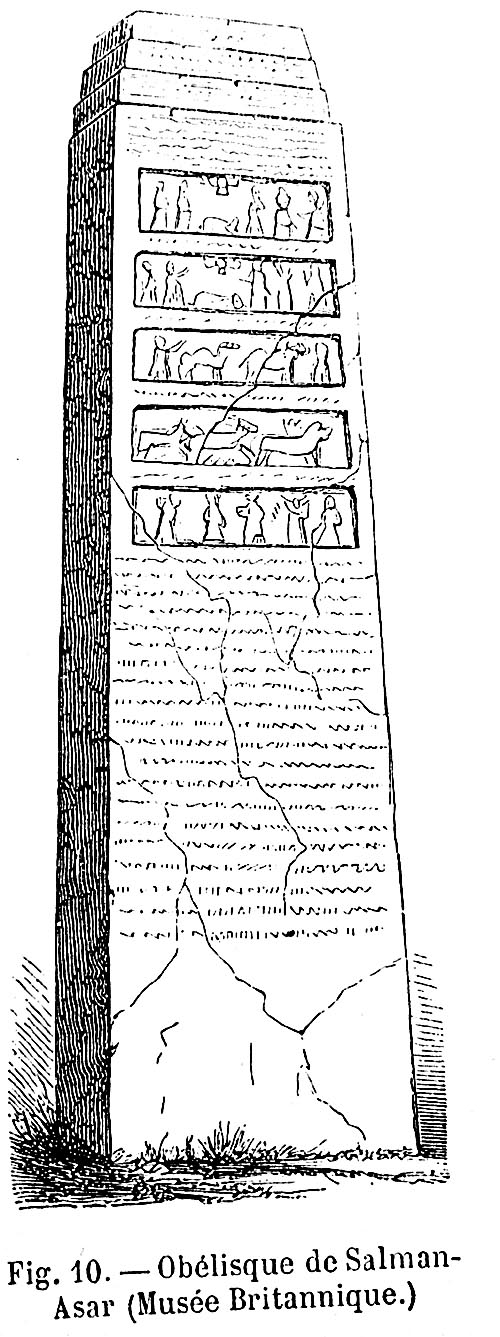 Fig. 10. — Obélisque de Salman-
Asar (Musée Britannique.)